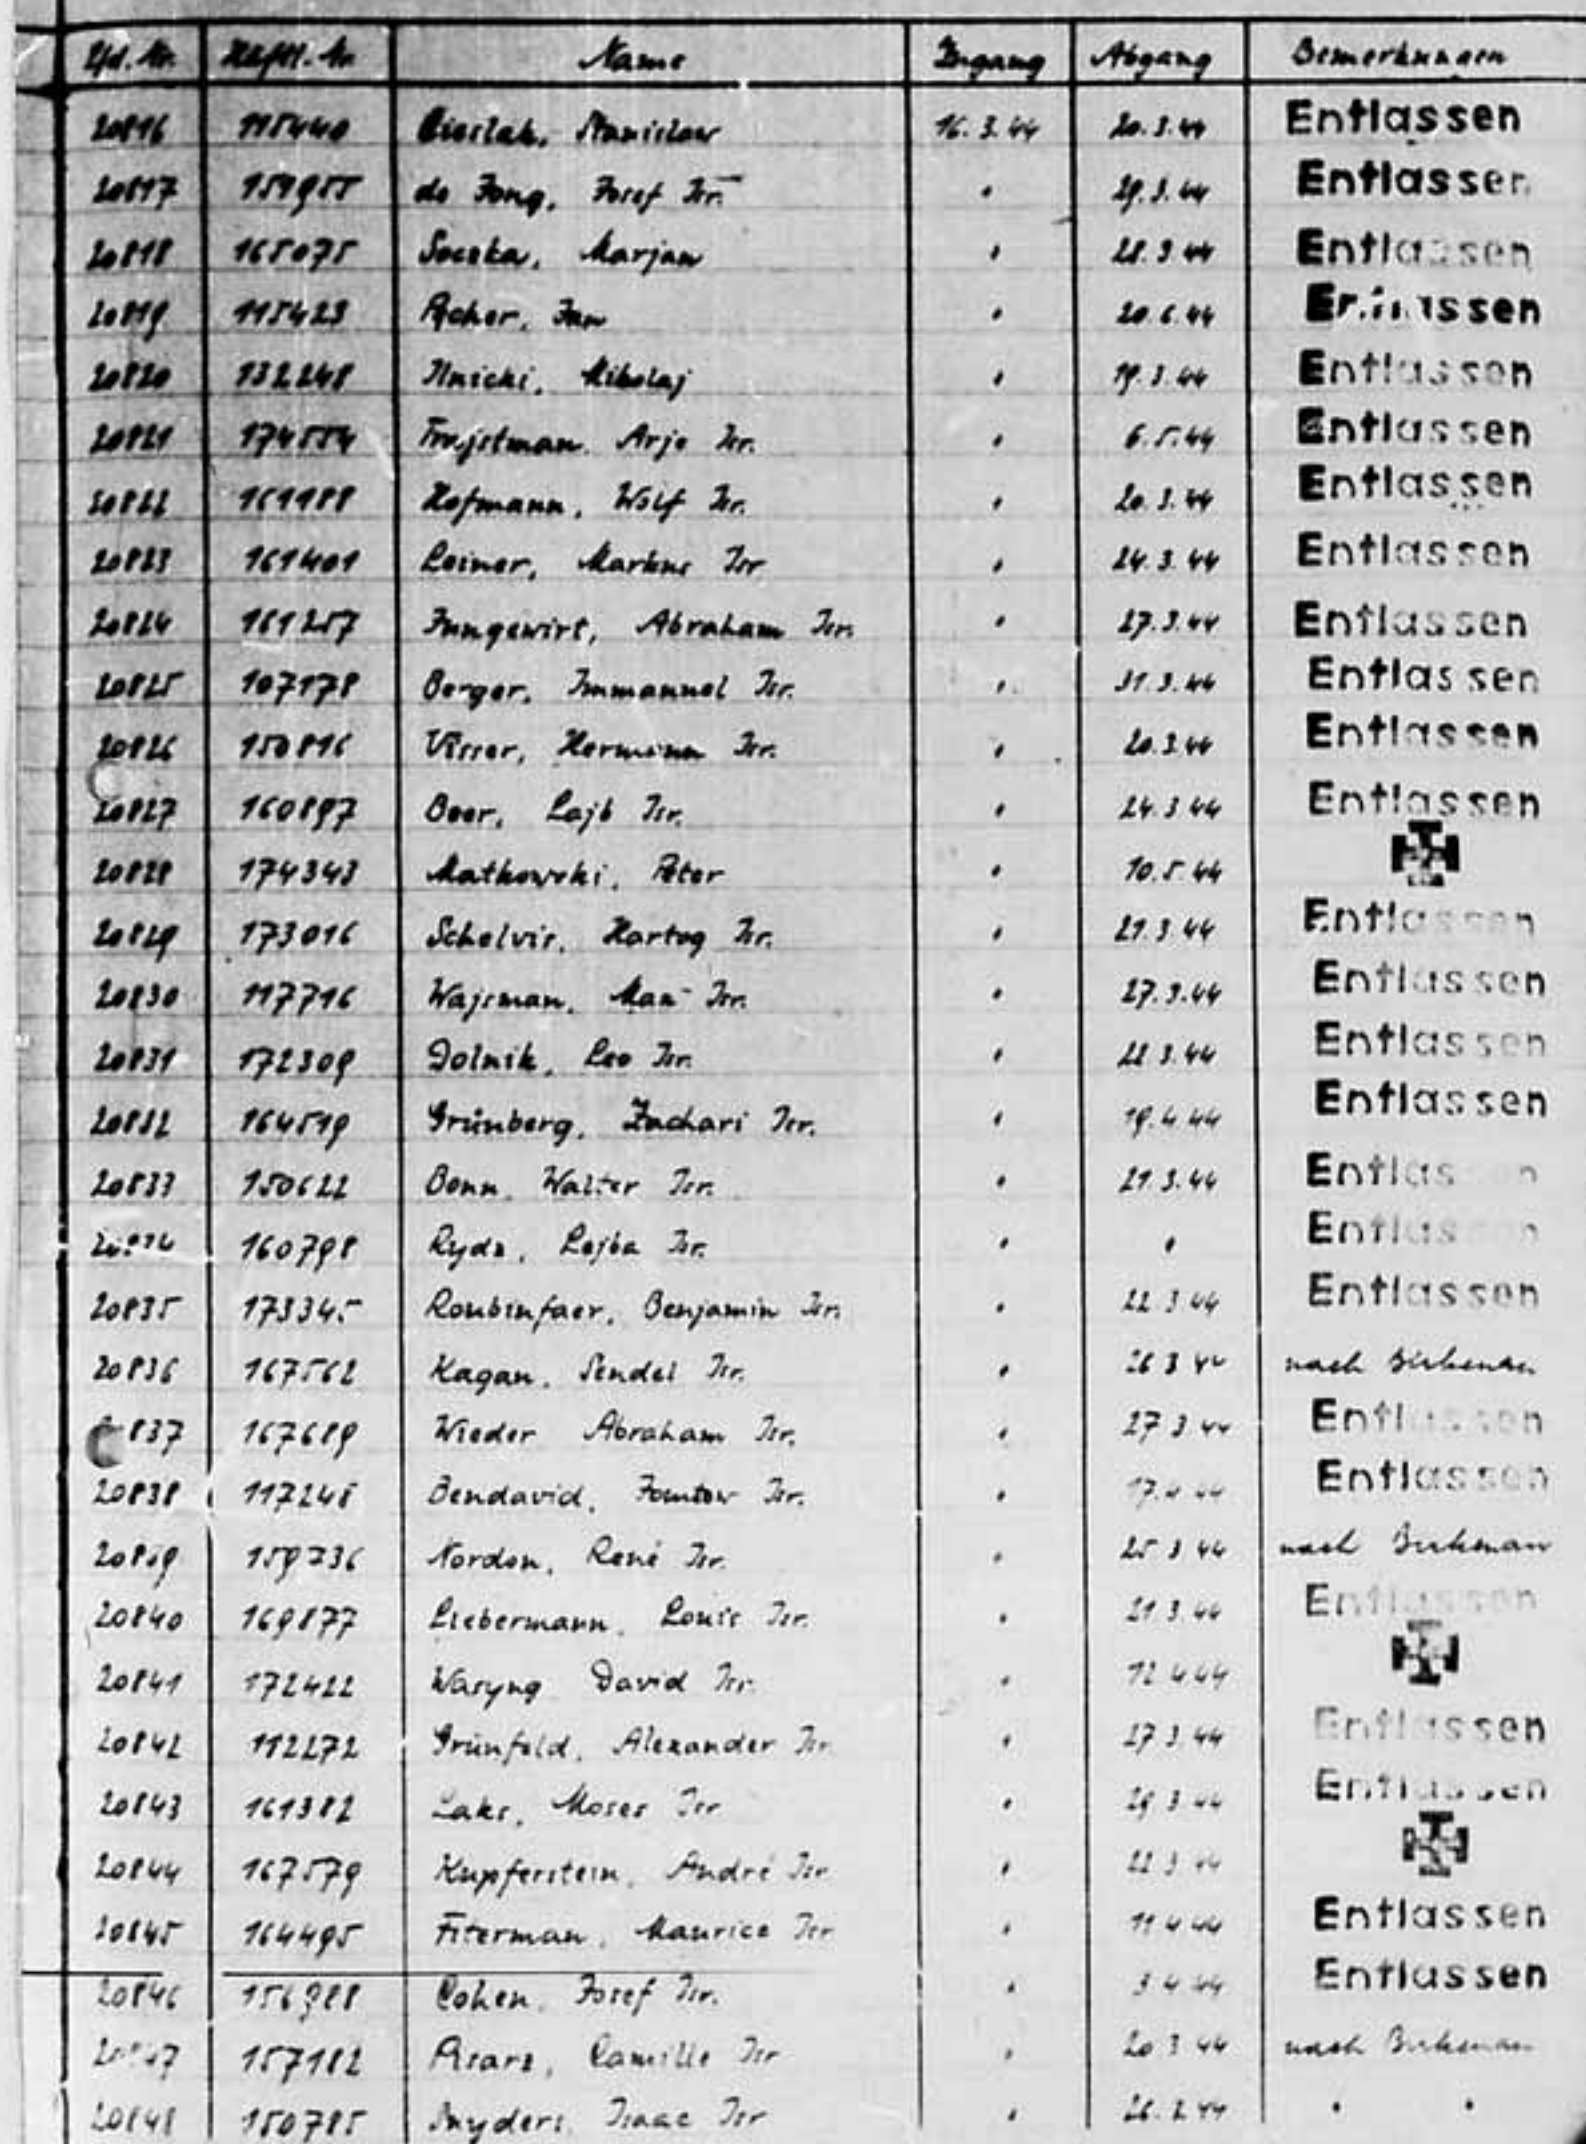 Lfd. Nr. Häftl.-Nr. Name Zugang Abgang Bemerkungen
20816 115440 Cieslak, Stanislaw 16.3.44 20.3.44 Entlassen
20817 151955 de Jong, Josef Isr. " 29.3.44 Entlassen
20818 165075 Soczka, Marjan " 28.3.44 Entlassen
20819 115423 Jan " 20.6.44 Entlassen
20820 132248 Ilnicki, Mikolaj " 19.3.44 Entlassen
20821 174554 Arje Isr. " 6.5.44 Entlassen
20822 161188 Hofmann, Wolf Isr. " 20.3.44 Entlassen
20823 161401 Leiner, Markus Isr " 24.3.44 Entlassen
20824 161257 Jungewirt, Abraham Isr. " 27.3.44 Entlassen
20825 107178 Berger, Immanuel Isr. " 31.3.44 Entlassen
20826 150816 Visser, Hermann Isr. " 20.3.44 Entlassen
20827 160897 Beer, Lajb Isr. " 24.3.44 Entlassen
20828 174343 Matkowski, Peter " 10.5.44
20829 173016 Schelvis, Hartog Isr. " 21.3.44 Entlassen
20830 117716 Wajsman, Max Isr. " 27.3.44 Entlassen
20831 172309 Dolnik, Leo Isr. " 28.3.44 Entlassen
20832 164519 Grünberg, Zachari Isr. " 19.4.44 Entlassen
20833 150622 Bonn, Walter Isr. " 21.3.44 Entlassen
160798 Rydz, Lejba Isr. " " Entlassen
20835 173345 Roubinfaer, Benjamin Isr. " 22.3.44 Entlassen
20836 167562 Kagan, Sendel Isr. " 26.3.44 nach Birkenau
837 167689 Wieder Abraham Isr. " 27.3.44 Entlassen
20838 117248 Bendavid, Jomtow Isr. " 17.4.44 Entlassen
20839 159736 Nordon, René Isr. " 25.3.44 nach Birkenau
20840 169877 Liebermann, Louis Isr. " 21.3.44 Entlassen
20841 172422 Waryng David Isr. " 12.4.44
20842 112272 Grünfeld, Alexander Isr. " 27.3.44 Entlassen
20843 161382 Laks, Moses Isr " 29.3.44 Entlassen
20844 167579 Kupferstein, André Isr " 22.3.44
20845 164495 Fiterman, Maurice Isr " 11.4.44 Entlassen
20846 156988 Cohen, Josef Isr. " 3.4.44 Entlassen
20847 157182 Camille Isr " 20.3.44 nach Birkenau
20848 150785 Snyders, Isaac Isr " 26.3.44 " "